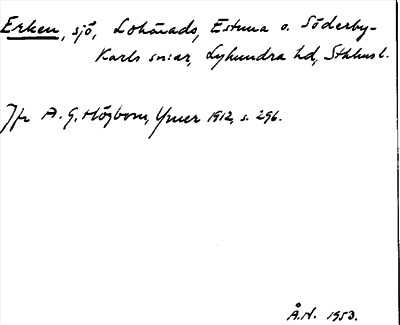 Erken, sjö, Lohärads, Estuna o. Söderby-
Karls sn:ar, Lyhundra hd, Sthlms l.
Jfr A. G. Högbom, Ymer 1912, s. 296.
Å.N. 1953.